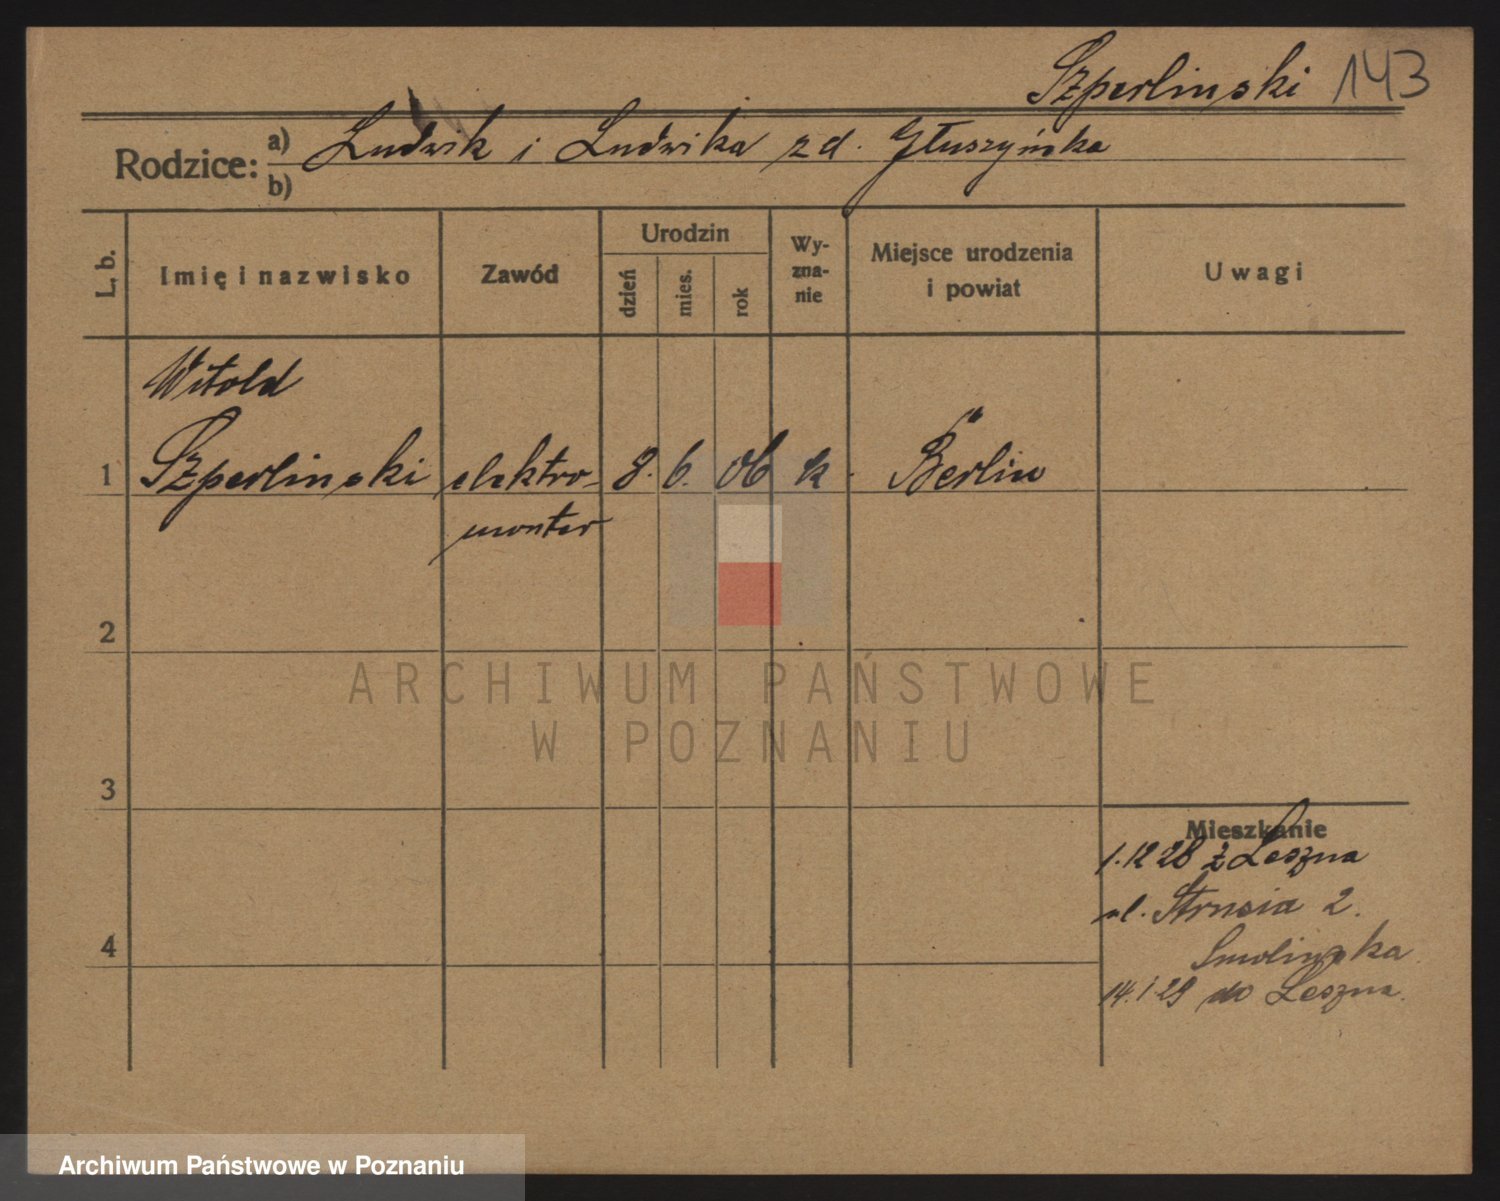 Szperlinski 143
Rodzice: a) Ludwik i Ludwika z d. Głuszyńska
b)
L. b.
Imię i nazwisko
Zawód
Urodzin
dzień
mies.
rok
Wy-
zna-
nie
Miejsce urodzenia
i powiat
Uwagi
Witold
1 Szperlinski elektro- 8. 6. 06 k. Berlin
monter
2
ARCHIWUM PAŃSTWOWE
W POZNANIU
3
Mieszkanie
1.12 28 z Leszna
ul. Strusia 2.
Smolinska
4
14.1 29 do Leszna.
Archiwum Państwowe w Poznaniu